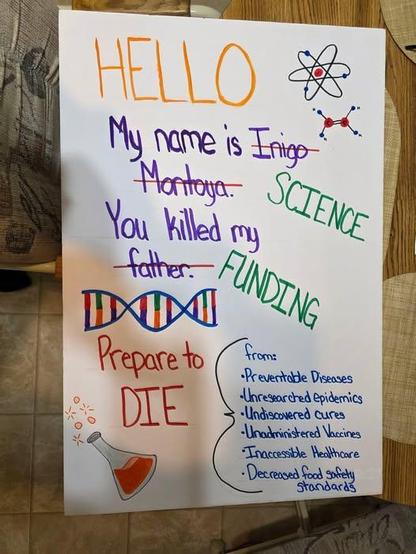 HELLO
My name is Inigo
Montoya.
SCIENCE
You killed my
father.
FUNDING
Prepare to
DIE
from:
•Preventable Diseases
•Unresearched Epidemics
•Undiscovered cures
•Unadministered Vaccines
•Inaccessible Healthcare
•Decreased food safety
standards